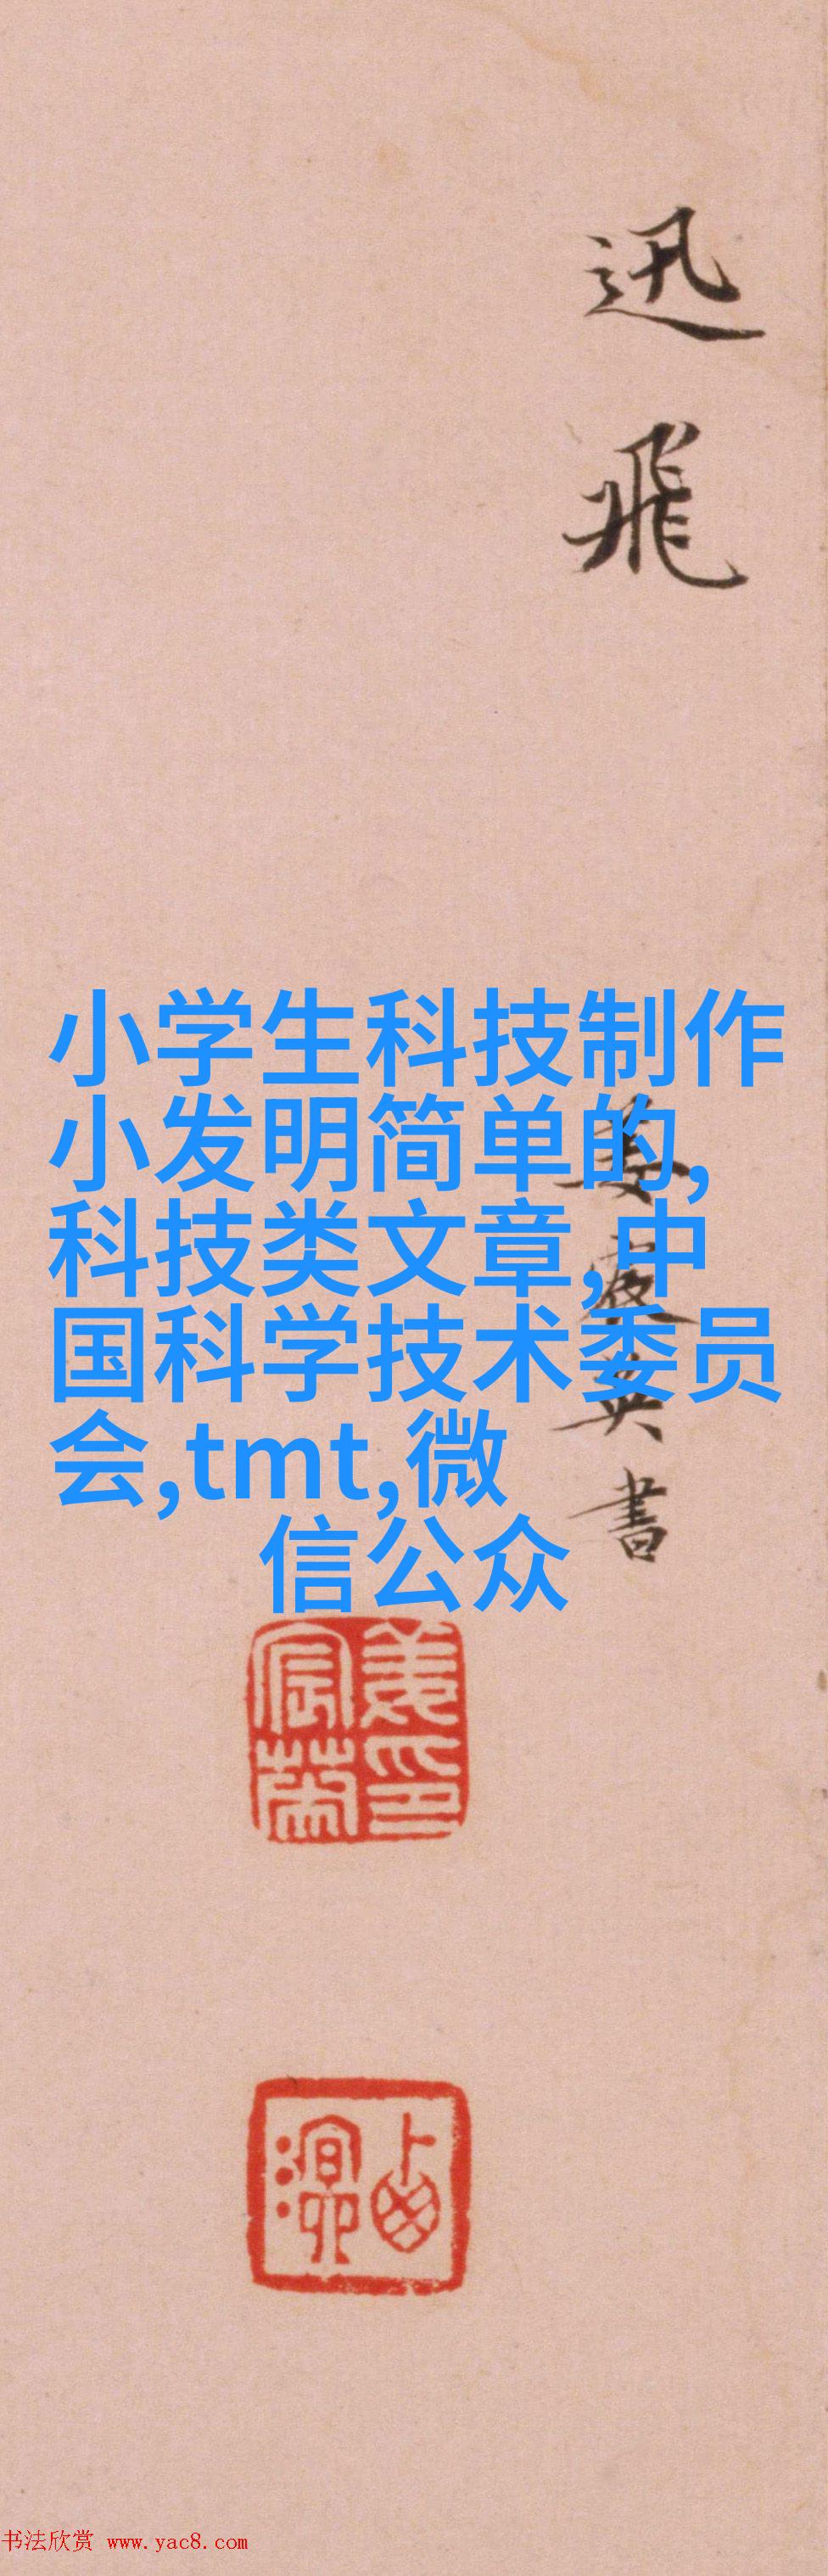 迅飛
姜宸英書
小学生科技制作
小发明简单的,
科技类文章,中
国科学技术委员
会,tmt,微
信公众
姜宸英印
书法欣赏 www.yac8.com